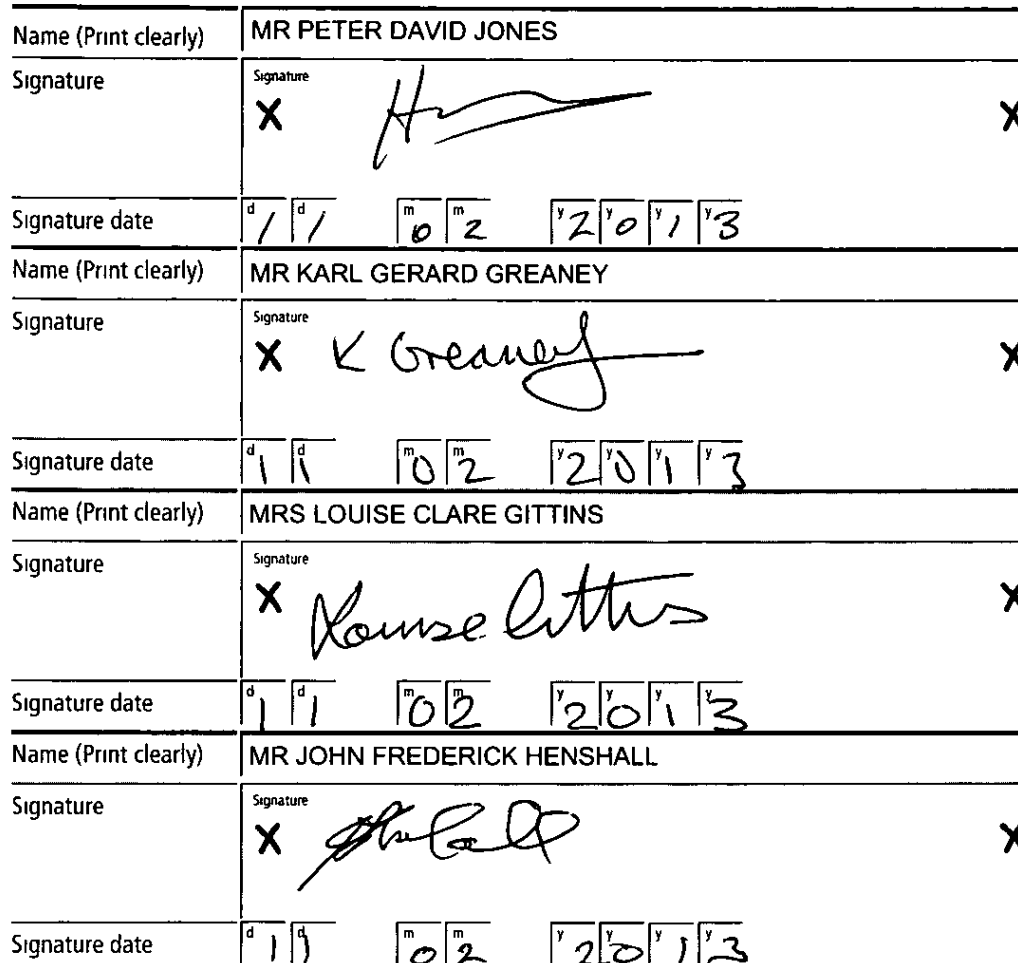 Name (Print clearly) MR PETER DAVID JONES
Signature Signature
X X
Signature date d 1 d 1 m 0 m 2 y 2 y 0 y 1 y 3
Name (Print clearly) MR KARL GERARD GREANEY
Signature Signature
X K Greaney X
Signature date d 1 d 1 m 0 m 2 y 2 y 0 y 1 y 3
Name (Print clearly) MRS LOUISE CLARE GITTINS
Signature Signature
X Louise Gittins X
Signature date d 1 d 1 m 0 m 2 y 2 y 0 y 1 y 3
Name (Print clearly) MR JOHN FREDERICK HENSHALL
Signature Signature
X X
Signature date d 1 d 1 m 0 m 2 y 2 y 0 y 1 y 3